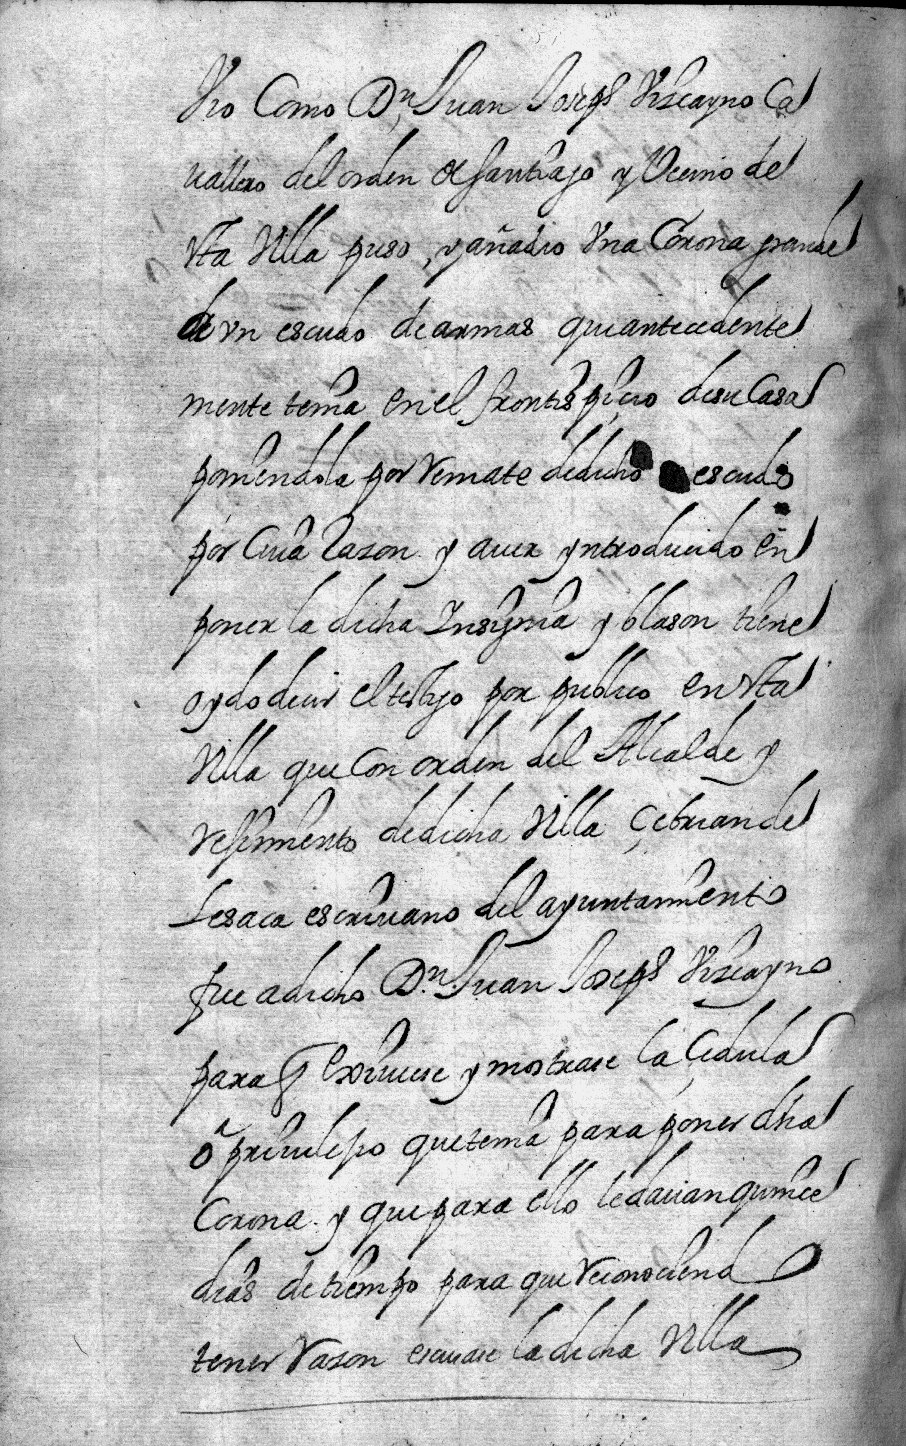 Vio Como Dn Juan Joseph Viscayno Ca
uallero del orden de santiago y Vecino de
esta Villa puso, y añadio Vna Corona grande
de vn escudo de armas que antecedente
mente tenia en el frontispicio de su Casa
poniendola por Remate de dicho escudo
por Cuia Razon y auer yntroducido en
poner la dicha Insignia y blason tiene
oydo decir el testigo por publico en esta
Villa que Con orden del Alcalde y
Regimiento de dicha Villa Çebrian de
Lesaca escriuano del ayuntamiento
fue a dicho Dn Juan Joseph Viscayno
para q exiuiese y mostrase la Çedula
o preuilegio que tenia para poner dha
Corona y que para ello le dauan quince
dias de tiempo para que Reconociend
tener Razon escusase la dicha Villa